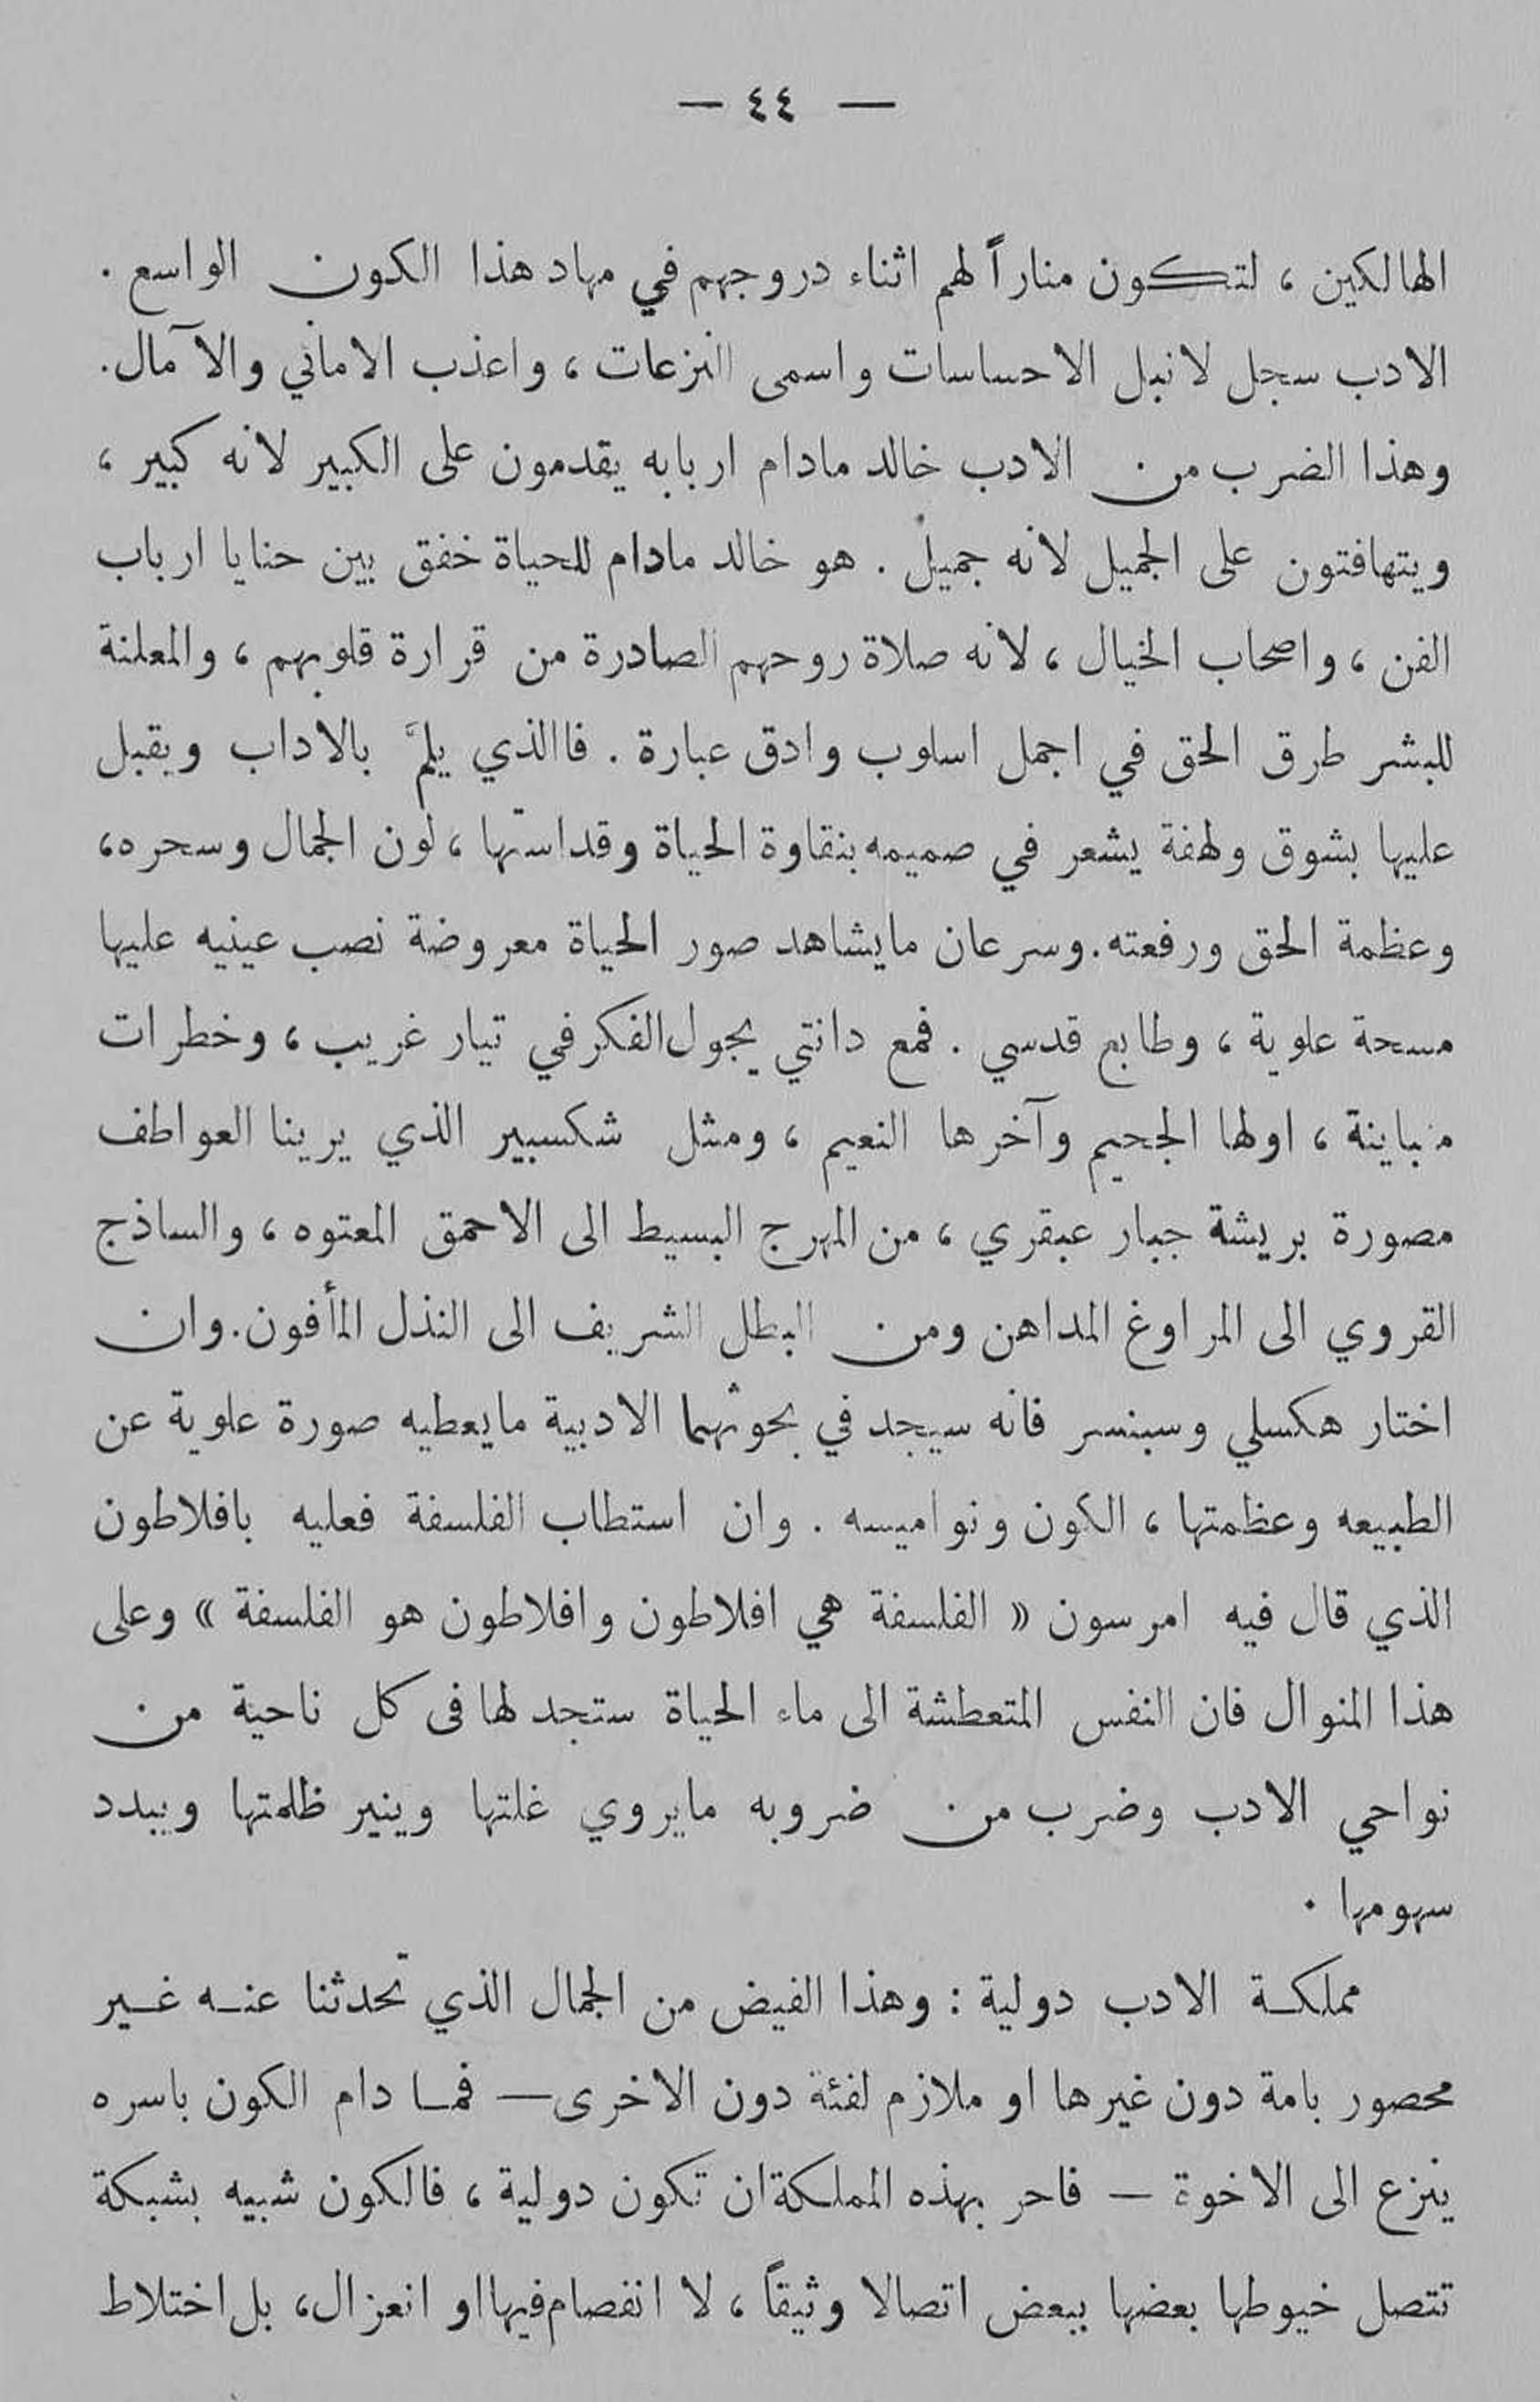 — ٤٤ —
الهالكين ، لتكون مناراً لهم اثناء دروجهم في مهاد هذا الكون الواسع .
الادب سجل لانبل الاحساسات واسمى النزعات ، واعذب الاماني والآمال .
وهذا الضرب من الادب خالد مادام اربابه يقدمون على الكبير لانه كبير ،
ويتهافتون على الجميل لانه جميل . هو خالد مادام للحياة خفق بين حنايا ارباب
الفن ، واصحاب الخيال ، لانه صلاة روحهم الصادرة من قرارة قلوبهم ، والمعلنة
للبشر طرق الحق في اجمل اسلوب وادق عبارة . فاالذي يلمَّ بالاداب ويقبل
عليها بشوق ولهفة يشعر في صميمه بنقاوة الحياة وقداستها ، لون الجمال وسحره ،
وعظمة الحق ورفعته . وسرعان مايشاهد صور الحياة معروضة نصب عينيه عليها
مسحة علوية ، وطابع قدسي . فمع دانتي يجول الفكر في تيار غريب ، وخطرات
متباينة ، اولها الجحيم وآخرها النعيم ، ومثل شكسبير الذي يرينا العواطف
مصورة بريشة جبار عبقري ، من المهرج البسيط الى الاحمق المعتوه ، والساذج
القروي الى المراوغ المداهن ومن البطل الشريف الى النذل المأفون . وان
اختار هكسلي وسبنسر فانه سيجد في بحوثهما الادبية مايعطيه صورة علوية عن
الطبيعه وعظمتها ، الكون ونواميسه . وان استطاب الفلسفة فعليه بافلاطون
الذي قال فيه امرسون « الفلسفة هي افلاطون وافلاطون هو الفلسفة » وعلى
هذا المنوال فان النفس المتعطشة الى ماء الحياة ستجد لها فى كل ناحية من
نواحي الادب وضرب من ضروبه مايروي غلتها وينير ظلمتها ويبدد
سهومها .
مملكة الادب دولية : وهذا الفيض من الجمال الذي تحدثنا عنه غير
محصور بامة دون غيرها او ملازم لفئة دون الاخرى — فما دام الكون باسره
ينزع الى الاخوة — فاحر بهذه المملكة ان تكون دولية ، فالكون شبيه بشبكة
تتصل خيوطها بعضها ببعض اتصالا وثيقاً ، لا انفصام فيها او انعزال ، بل اختلاط